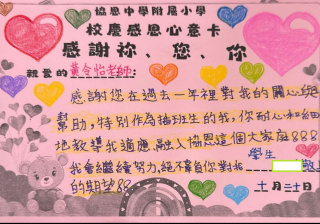 協恩中學附屬小學
校慶感恩心意卡
感謝祢、您、你
親愛的黃令怡老師:
感謝您在過去一年裡對我的關心與
幫助,特別作為插班生的我,你耐心和細
地教導我適應融入協恩這個大家庭888
我會繼續努力,絕不辜負你對我
的期望88
學生
敬上
十月二十日